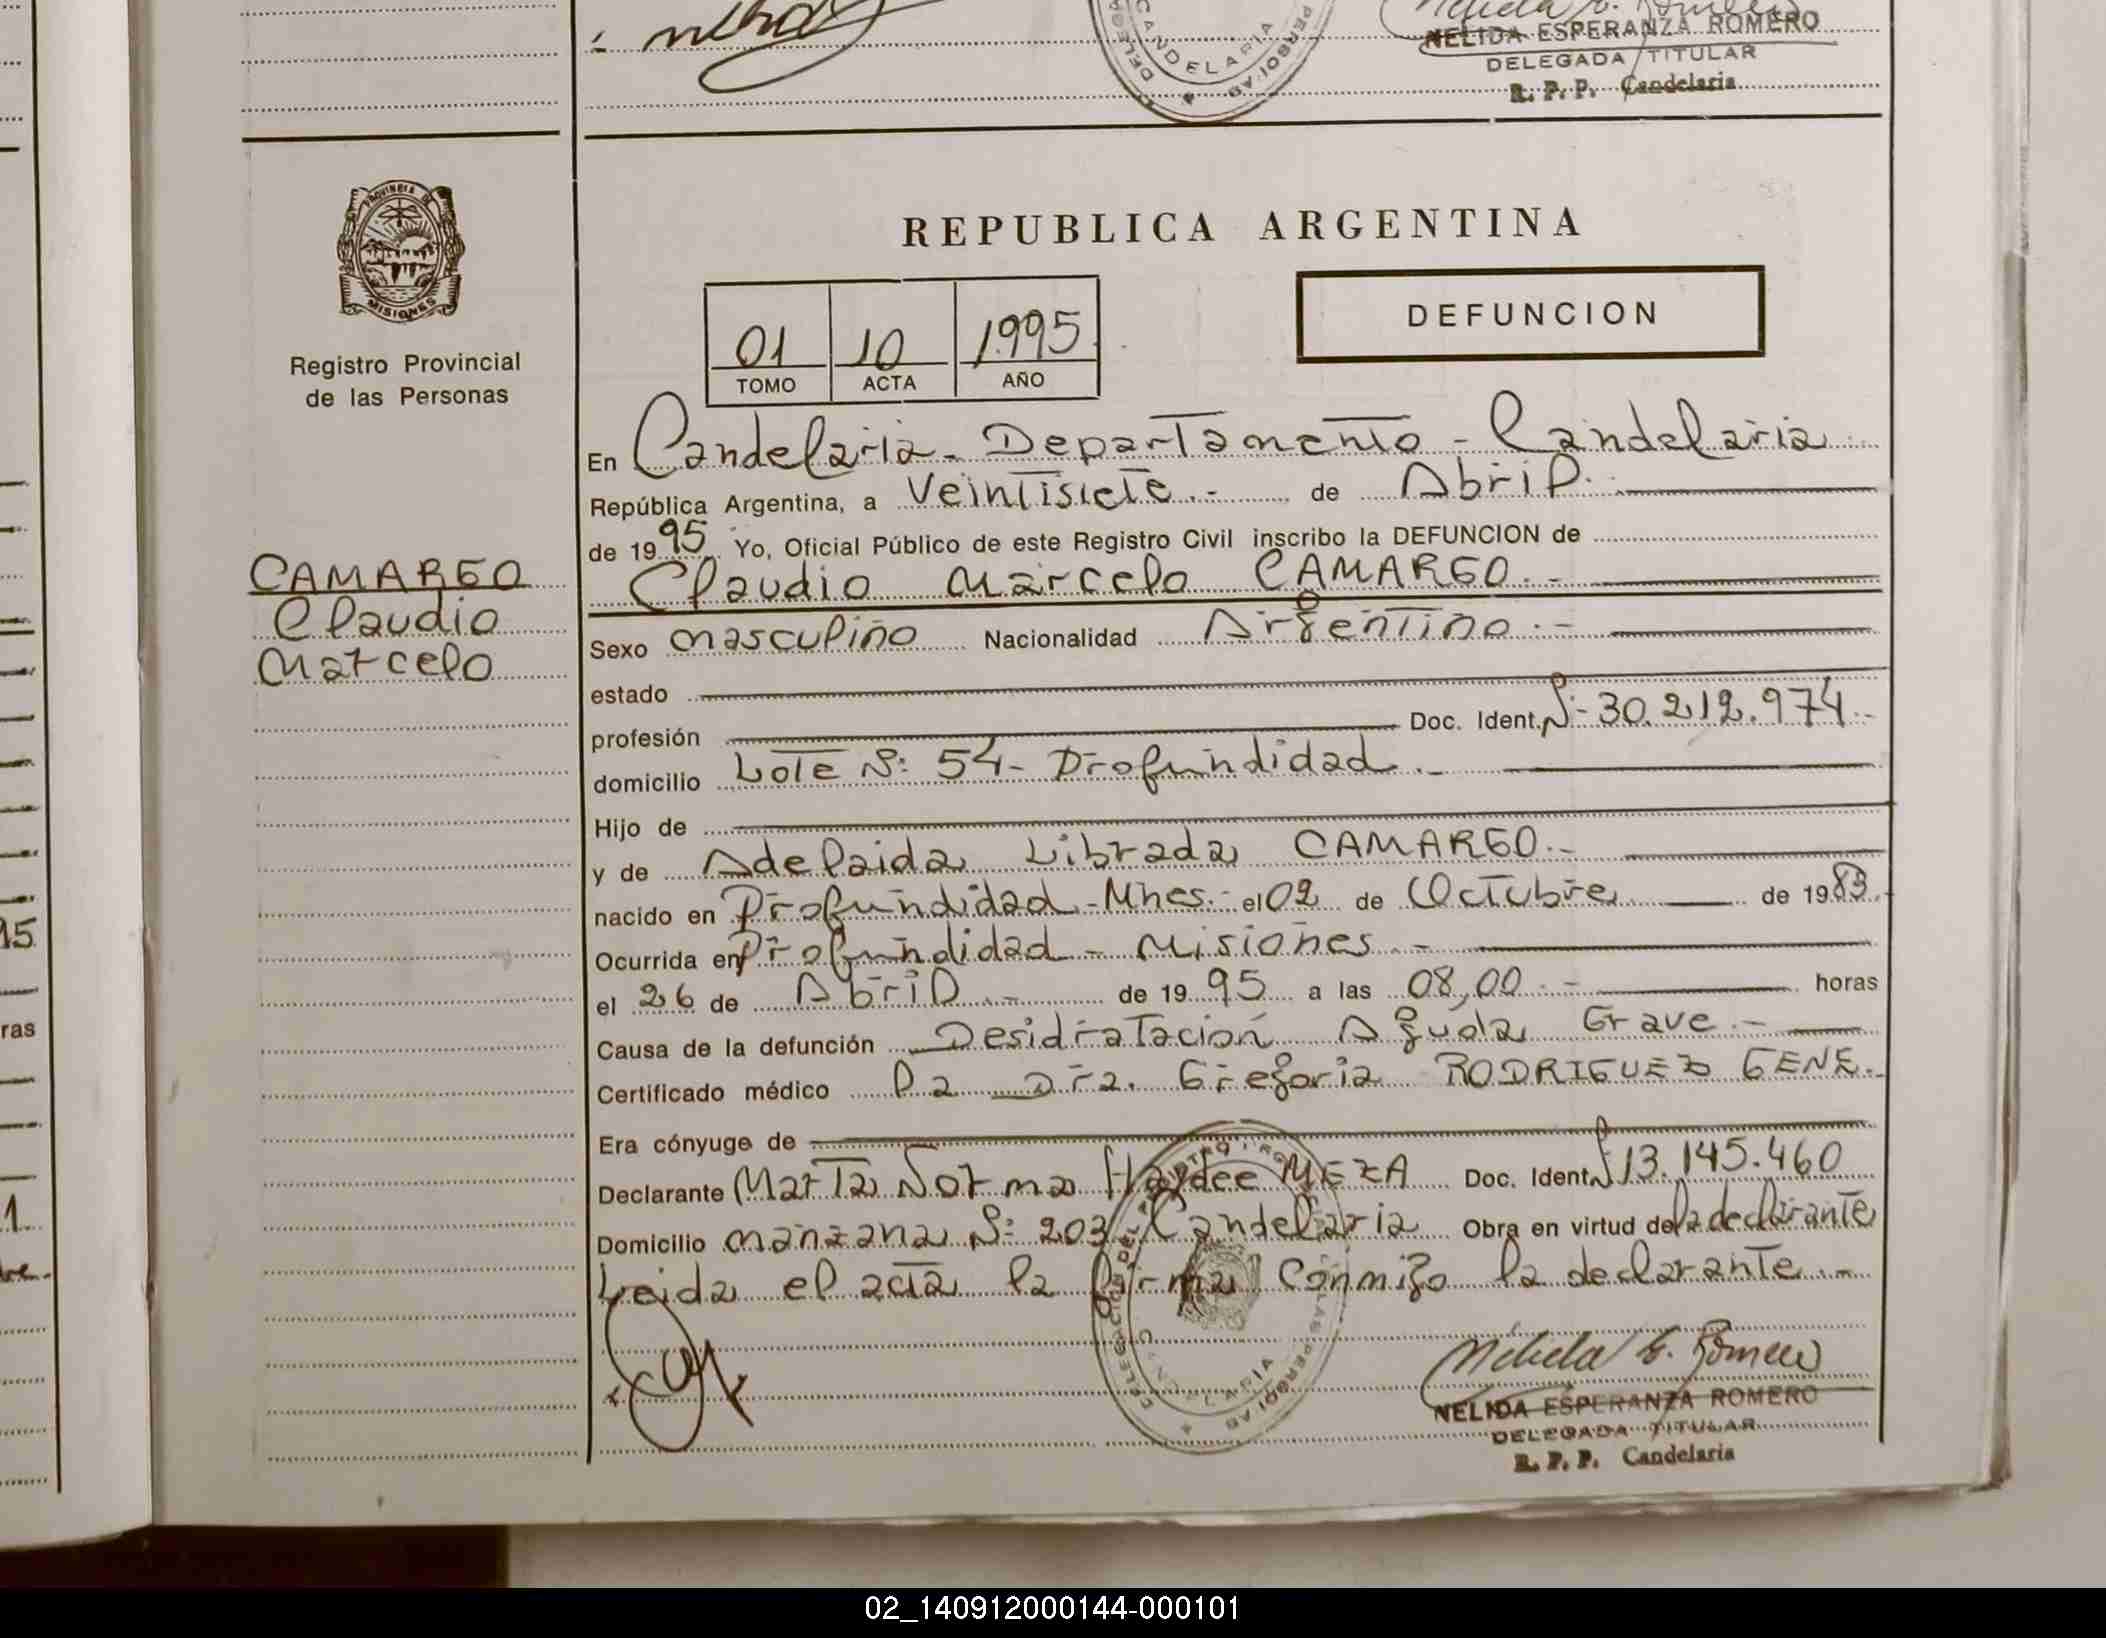 NELIDA ESPERANZA ROMERO
DELEGADA TITULAR
R. P. P. Candelaria
CANDELARIA
PROVINCIA DE
MISIONES
Registro Provincial
de las Personas
CAMARGO
Claudio
Marcelo
REPUBLICA ARGENTINA
01 10 1995
TOMO ACTA AÑO
DEFUNCION
En Candelaria - Departamento - Candelaria
República Argentina, a Veintisiete.- de Abril.
de 1995. Yo, Oficial Público de este Registro Civil inscribo la DEFUNCION de
Claudio Marcelo CAMARGO.-
Sexo masculino Nacionalidad Argentino.-
estado
profesión Doc. Ident. Nº 30.212.974.-
domicilio Lote Nº 54- Profundidad.-
Hijo de
y de Adelaida Librada CAMARGO.-
nacido en Profundidad - Mnes.- el 02 de Octubre de 1983.
Ocurrida en Profundidad - Misiones.-
el 26 de Abril.- de 1995 a las 08,00.- horas
Causa de la defunción Desidratación Aguda Grave.-
Certificado médico la Dra. Gregoria RODRIGUEZ GENE.
Era cónyuge de
Declarante Marta Norma Haydee MEZA Doc. Ident. N 13.145.460
Domicilio manzana Nº 203 Candelaria Obra en virtud de la declarante
Leida el acta la firma conmigo la declarante.-
Nelida E. Romero
NELIDA ESPERANZA ROMERO
DELEGADA TITULAR
R. P. P. Candelaria
15
ras
1
02_140912000144-000101